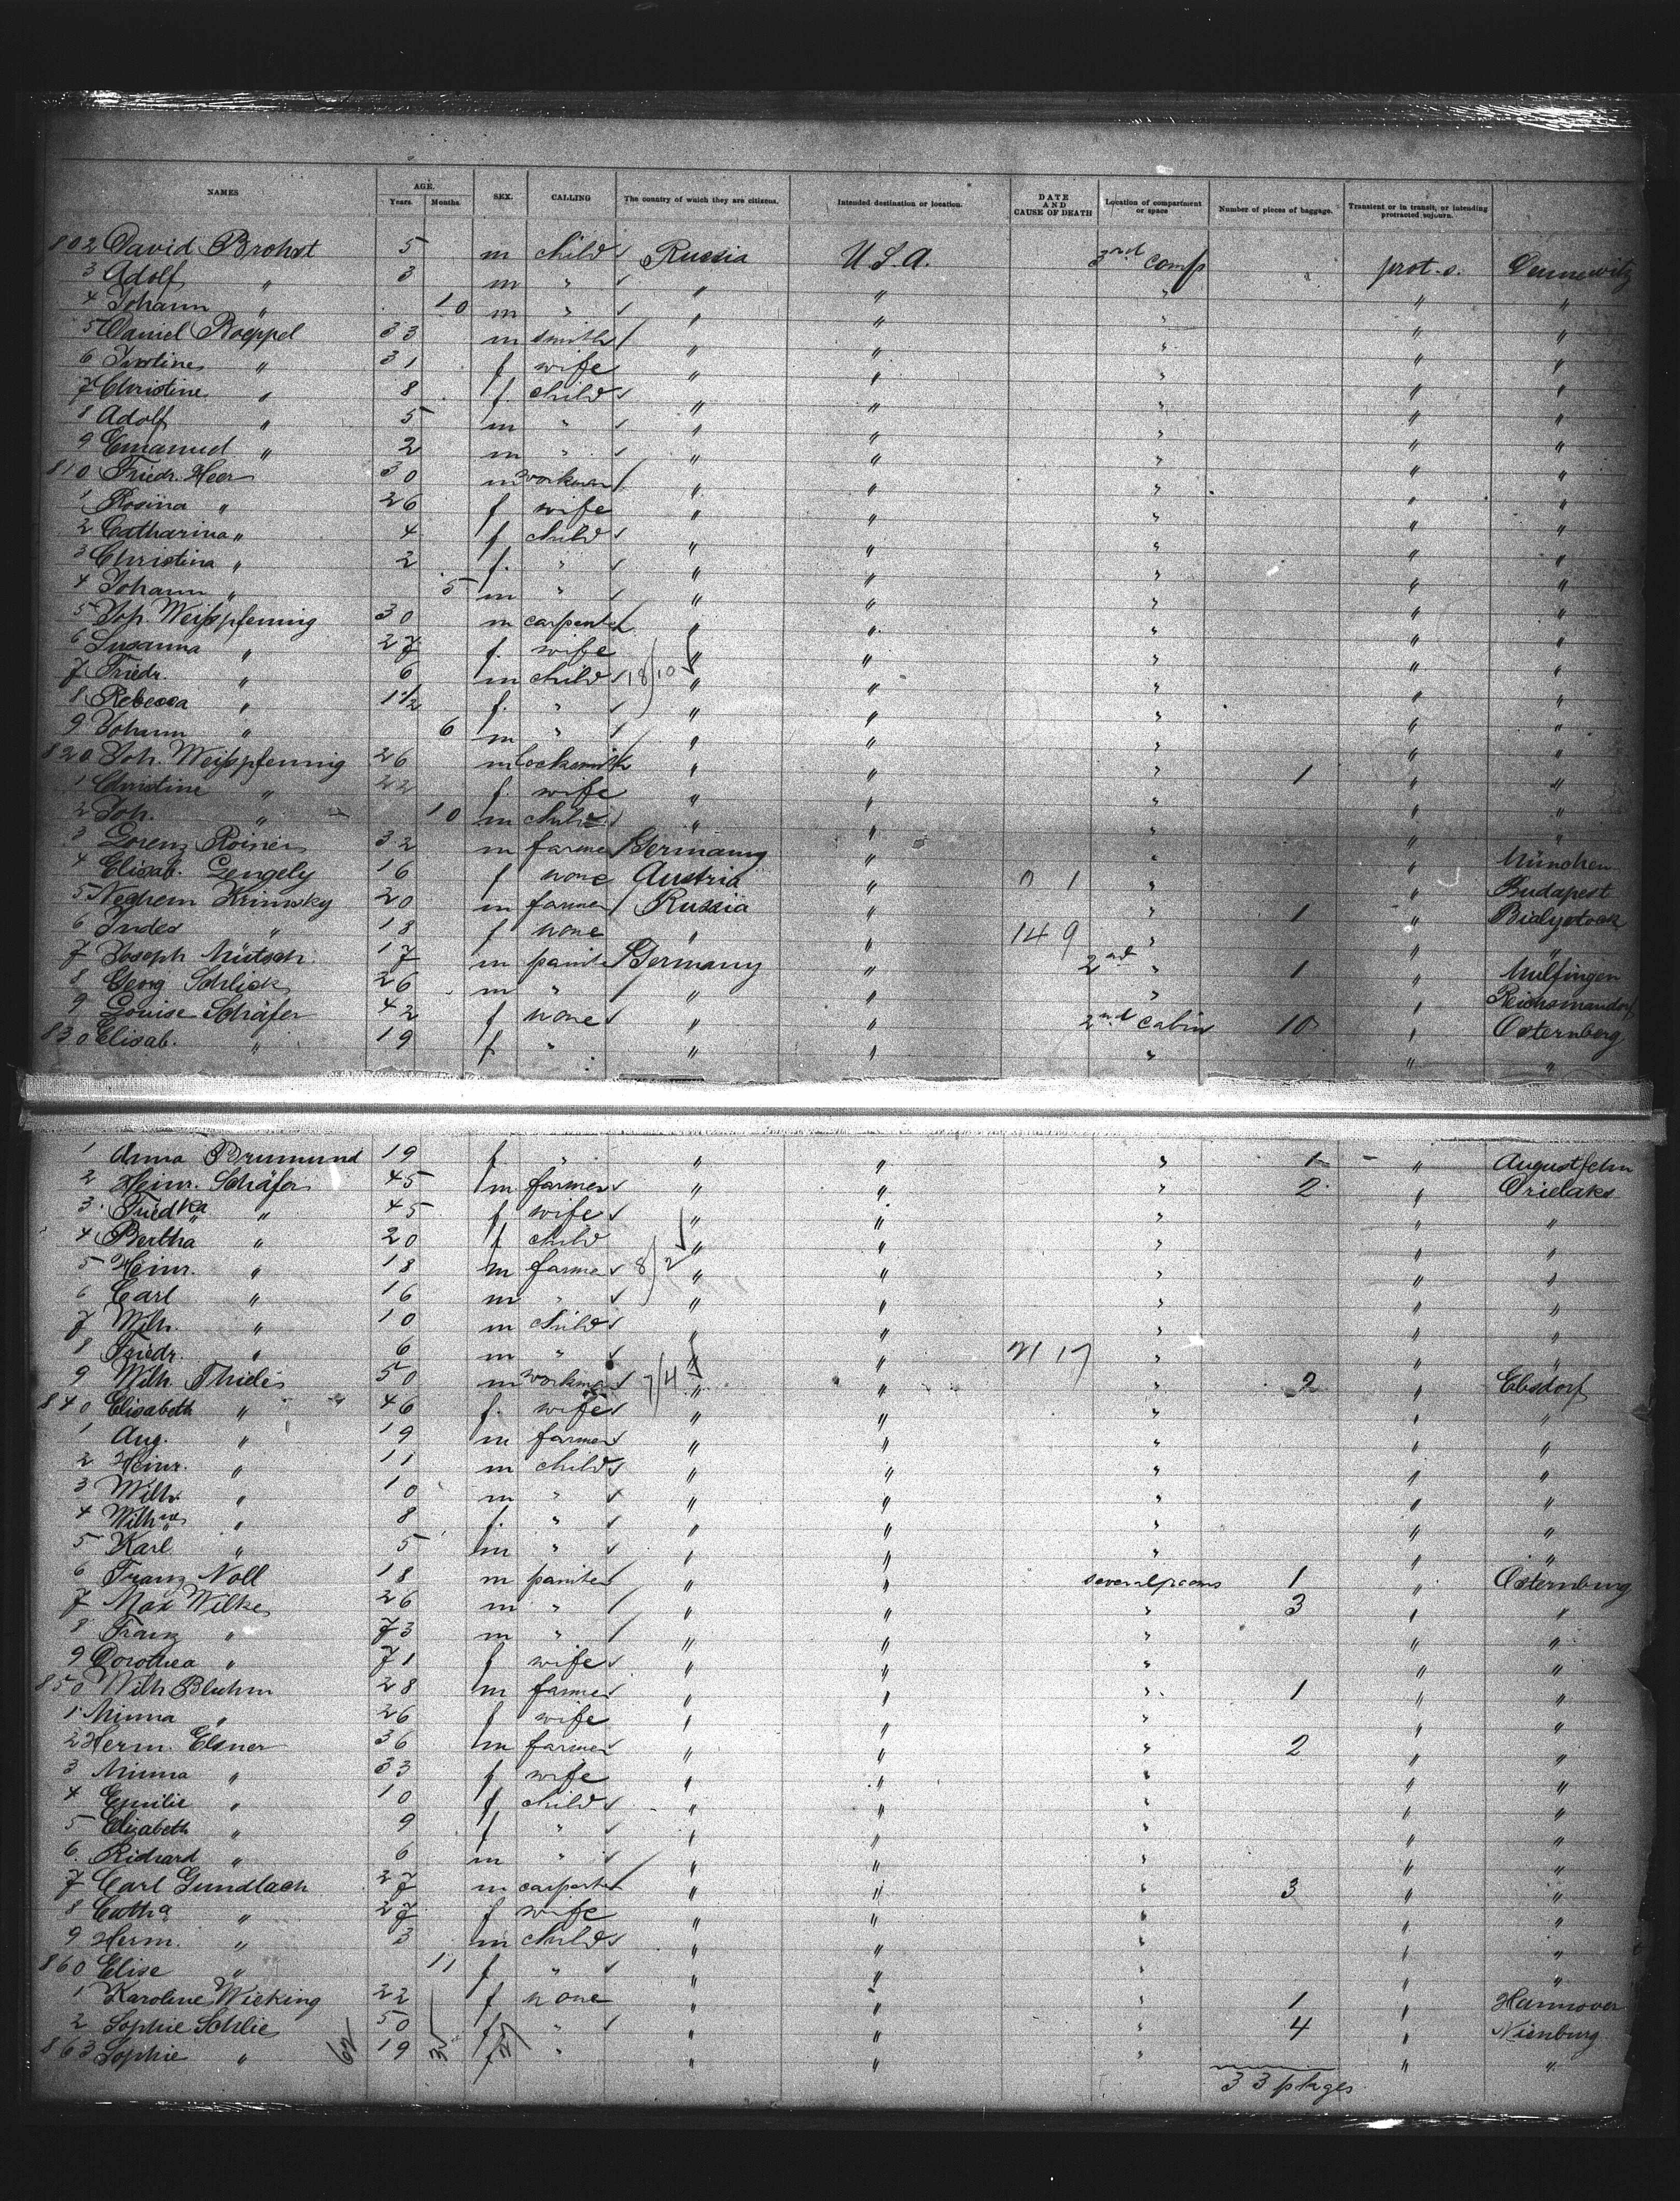 NAMES AGE. Years. Months. SEX. CALLING The country of which they are citizens. Intended destination or location. DATE AND CAUSE OF DEATH Location of compartment or space Number of pieces of baggage. Transient or in transit, or intending protracted sojourn.
802 David Brohst 5 m child Russia U.S.A. 3rd comp prot. s.
3 Adolf " 3 m " " " " " "
4 Johann " 10 m " " " " " "
5 Daniel Boeppel 33 m smith " " " " "
6 " 31 f wife " " " " "
7 Christine " 8 f. child " " " " "
8 Adolf " 5 m " " " " " "
9 Emanuel " 2 m " " " " " "
810 Friedr. Heer 30 m workman " " " " "
1 Rosina " 26 f wife " " " " "
2 Catharina " 4 f child " " " " "
3 Christina " 2 f. " " " " " "
4 Johann " 5 m " " " " " "
5 Joh Weißpfenning 30 m carpenter " " " " "
6 Susanna " 27 f. wife " " " " "
7 Friedr. " 6 m child 18/10 " " " " "
8 Rebecca " 1 1/2 f. " " " " " "
9 Johann " 6 m " " " " " "
820 Joh. Weißpfenning 26 m locksmith " " " 1 " "
1 Christine " 22 f. wife " " " " "
2 Joh. " 10 m child " " " " "
3 Lorenz Roiner 32 m farmer Germany " " " München
4 Elisab. Gengely 16 f none Austria " " " Budapest
5 Krimsky 20 m farmer Russia " " 1 " Bialystock
6 " 18 f none " " 149 " " "
7 Joseph Mütsch 17 m painter Germany " 2nd " 1 " Mulfingen
8 Georg Schlick 26 m " " " " " Reichsmandorf
9 Louise Schäfer 42 f none " " 2nd cabin 10 " Osternberg
830 Elisab. " 19 f. " " " " " "
1 Anna Brumund 19 f. " " " " 1 " Augustfehn
2 Heinr. Schäfer 45 m farmer " " " 2 "
3 Friedka " 45 f wife " " " " "
4 Bertha " 20 f child " " " " "
5 Heinr. " 18 m farmer 8/2 " " " " "
6 Carl " 16 m " " " " " "
7 Wilh. " 10 m child " " " " "
8 Friedr. " 6 m " " " " " "
9 Wilh. Thiele 50 m workman 7/4 " " " 2 " Ebsdorf
840 Elisabeth " 46 f. wife " " " " "
1 Aug. " 19 m farmer " " " " "
2 Heinr. " 11 m child " " " " "
3 Wilh. " 10 m " " " " " "
4 Wilhne " 8 f. " " " " " "
5 Karl " 5 m " " " " " "
6 Franz Noll 18 m painter " " several rooms 1 " Osternburg
7 Max Wilke 26 m " " " " 3 " "
8 Franz " 73 m " " " " " "
9 Dorothea " 71 f wife " " " " "
850 Wilh Bluhm 28 m farmer " " " 1 " "
1 Minna " 26 f wife " " " " "
2 Herm. Elsner 36 m farmer " " " 2 " "
3 Minna " 33 f wife " " " " "
4 Emilie " 10 f child " " " " "
5 Elisabeth " 9 f " " " " " "
6 Richard " 6 m " " " " " "
7 Carl Gundlach 27 m carpenter " " " 3 " "
8 Catha " 27 f wife " " " " "
9 Herm. " 3 m child " " " " "
860 Elise " 11 f " " " " " "
1 Karoline Wieking 22 f none " " " 1 " Hannover
2 Sophie Schlie 50 f " " " " 4 " Nienburg
863 Sophie " 19 f " " " " " "
33 pkges